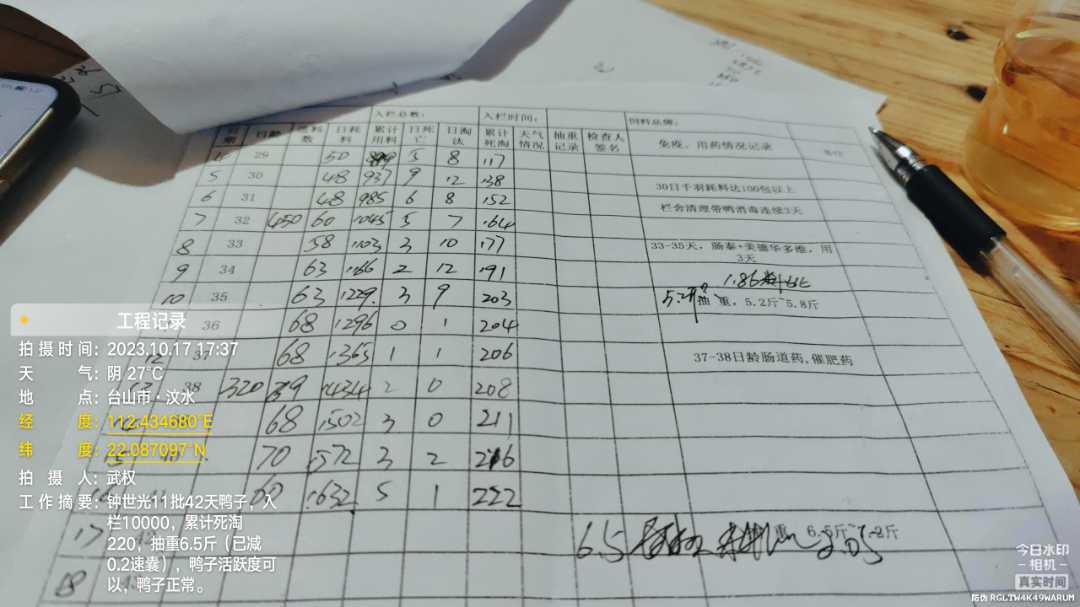 入栏总数： 入栏时间： 饲料品牌：
日期 日龄 进料数 日耗料 累计用料 日死亡 日淘汰 累计死淘 天气情况 抽重记录 检查人签名 免疫、用药情况记录 备注
29 50 5 8 117
5 30 48 937 9 12 138
30日千羽耗料达100包以上
6 31 48 985 6 8 152
栏舍清理带鸭消毒连续3天
7 32 450 60 1045 5 7 164
8 33 58 1103 3 10 177
33-35天，肠泰+美德华多维，用3天
9 34 63 1166 2 12 191
1.86料比
10 35 63 1229 3 9 203
抽重，5.2斤~5.8斤
36 68 1296 0 1 204
12 37 68 1365 1 1 206
37-38日龄肠道药、催肥药
13 38 320 69 1434 2 0 208
68 1502 3 0 211
15 70 1572 3 2 216
16 60 1632 5 1 222
17
6.5
6.5斤~7.2斤
18
工程记录
拍摄时间：2023.10.17 17:37
天气：阴 27℃
地点：台山市·汶水
经度：112.434680°E
纬度：22.087097°N
拍摄人：武权
工作摘要：钟世光11批42天鸭子，入
栏10000，累计死淘
220，抽重6.5斤（已减
0.2速囊），鸭子活跃度可
以，鸭子正常。
今日水印
-相机-
真实时间
防伪 RGLTW4K49WARUM